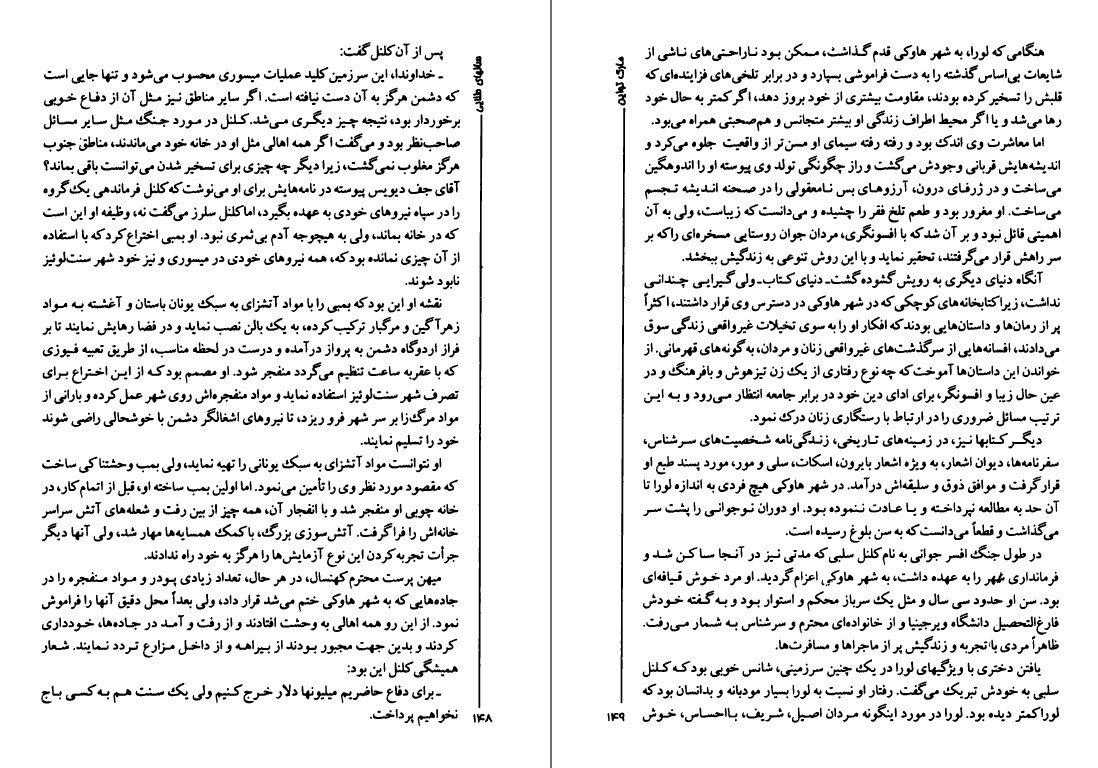 سالهای طلایی
پس از آن کلنل گفت:
ـ خداوندا، این سرزمین کلید عملیات میسوری محسوب می‌شود و تنها جایی است
که دشمن هرگز به آن دست نیافته است. اگر سایر مناطق نیز مثل آن از دفاع خوبی
برخوردار بود، نتیجه چیز دیگری می‌شد. کلنل در مورد جنگ مثل سایر مسائل
صاحب‌نظر بود و می‌گفت اگر همه اهالی مثل او در خانه خود می‌ماندند، مناطق جنوب
هرگز مغلوب نمی‌گشت، زیرا دیگر چه چیزی برای تسخیر شدن می‌توانست باقی بماند؟
آقای جف دیویس پیوسته در نامه‌هایش برای او می‌نوشت که کلنل فرماندهی یک گروه
را در سپاه نیروهای خودی به عهده بگیرد، اما کلنل سلرز می‌گفت نه، وظیفه او این است
که در خانه بماند، ولی به هیچوجه آدم بی‌ثمری نبود. او بمبی اختراع کرد که با استفاده
از آن چیزی نمانده بود که، همه نیروهای خودی در میسوری و نیز خود شهر سنت‌لوئیز
نابود شوند.
نقشه او این بود که بمبی را با مواد آتشزای به سبک یونان باستان و آغشته به مواد
زهرآگین و مرگبار ترکیب کرده، به یک بالن نصب نماید و در فضا رهایش نمایند تا بر
فراز اردوگاه دشمن به پرواز درآمده و درست در لحظه مناسب، از طریق تعبیه فیوزی
که با عقربه ساعت تنظیم می‌گردد منفجر شود. او مصمم بود که از این اختراع برای
تصرف شهر سنت‌لوئیز استفاده نماید و مواد منفجره‌اش روی شهر عمل کرده و بارانی از
مواد مرگ‌زا بر سر شهر فرو ریزد، تا نیروهای اشغالگر دشمن با خوشحالی راضی شوند
خود را تسلیم نمایند.
او نتوانست مواد آتشزای به سبک یونانی را تهیه نماید، ولی بمب وحشتناکی ساخت
که مقصود مورد نظر وی را تأمین می‌نمود. اما اولین بمب ساخته او، قبل از اتمام کار، در
خانه چوبی او منفجر شد و با انفجار آن، همه چیز از بین رفت و شعله‌های آتش سراسر
خانه‌اش را فرا گرفت. آتش‌سوزی بزرگ، با کمک همسایه‌ها مهار شد، ولی آنها دیگر
جرأت تجربه کردن این نوع آزمایش‌ها را هرگز به خود راه ندادند.
میهن پرست محترم کهنسال، در هر حال، تعداد زیادی پودر و مواد منفجره را در
جاده‌هایی که به شهر هاوکی ختم می‌شد قرار داد، ولی بعداً محل دقیق آنها را فراموش
نمود. از این رو همه اهالی به وحشت افتادند و از رفت و آمد در جاده‌ها، خودداری
کردند و بدین جهت مجبور بودند از بیراهه و از داخل مزارع تردد نمایند. شعار
همیشگی کلنل این بود:
ـ برای دفاع حاضریم میلیونها دلار خرج کنیم ولی یک سنت هم به کسی باج
نخواهیم پرداخت.
۱۴۸
مارک تواین
هنگامی که لورا، به شهر هاوکی قدم گذاشت، ممکن بود ناراحتی‌های ناشی از
شایعات بی‌اساس گذشته را به دست فراموشی بسپارد و در برابر تلخی‌های فزاینده‌ای که
قلبش را تسخیر کرده بودند، مقاومت بیشتری از خود بروز دهد، اگر کمتر به حال خود
رها می‌شد و یا اگر محیط اطراف زندگی او بیشتر متجانس و هم‌صحبتی همراه می‌بود.
اما معاشرت وی اندک بود و رفته رفته سیمای او مسن‌تر از واقعیت جلوه می‌کرد و
اندیشه‌هایش قربانی وجودش می‌گشت و راز چگونگی تولد وی پیوسته او را اندوهگین
می‌ساخت و در ژرفای درون، آرزوهای بس نامعقولی را در صحنه اندیشه تجسم
می‌ساخت. او مغرور بود و طعم تلخ فقر را چشیده و می‌دانست که زیباست، ولی به آن
اهمیتی قائل نبود و بر آن شد که با افسونگری، مردان جوان روستایی مسخره‌ای را که بر
سر راهش قرار می‌گرفتند، تحقیر نماید و با این روش تنوعی به زندگیش ببخشد.
آنگاه دنیای دیگری به رویش گشوده گشت ـ دنیای کتاب ـ ولی گیرایی چندانی
نداشت، زیرا کتابخانه‌های کوچکی که در شهر هاوکی در دسترس وی قرار داشتند، اکثراً
پر از رمان‌ها و داستان‌هایی بودند که افکار او را به سوی تخیلات غیرواقعی زندگی سوق
می‌دادند، افسانه‌هایی از سرگذشت‌های غیرواقعی زنان و مردان، به گونه‌های قهرمانی. از
خواندن این داستان‌ها آموخت که چه نوع رفتاری از یک زن تیزهوش و بافرهنگ و در
عین حال زیبا و افسونگر، برای ادای دین خود در برابر جامعه انتظار می‌رود و به این
ترتیب مسائل ضروری را در ارتباط با رستگاری زنان درک نمود.
دیگر کتابها نیز، در زمینه‌های تاریخی، زندگی‌نامه شخصیت‌های سرشناس،
سفرنامه‌ها، دیوان اشعار، به ویژه اشعار بایرون، اسکات، سلی و مور، مورد پسند طبع او
قرار گرفت و موافق ذوق و سلیقه‌اش درآمد. در شهر هاوکی هیچ فردی به اندازه لورا تا
آن حد به مطالعه نپرداخته و یا عادت ننموده بود. او دوران نوجوانی را پشت سر
می‌گذاشت و قطعاً می‌دانست که به سن بلوغ رسیده است.
در طول جنگ افسر جوانی به نام کلنل سلبی که مدتی نیز در آنجا ساکن شد و
فرمانداری شهر را به عهده داشت، به شهر هاوکی اعزام گردید. او مرد خوش قیافه‌ای
بود. سن او حدود سی سال و مثل یک سرباز محکم و استوار بود و به گفته خودش
فارغ‌التحصیل دانشگاه ویرجینیا و از خانواده‌ای محترم و سرشناس به شمار می‌رفت.
ظاهراً مردی با تجربه و زندگیش پر از ماجراها و مسافرت‌ها.
یافتن دختری با ویژگیهای لورا در یک چنین سرزمینی، شانس خوبی بود که کلنل
سلبی به خودش تبریک می‌گفت. رفتار او نسبت به لورا بسیار مودبانه و بدانسان بود که
لورا کمتر دیده بود. لورا در مورد اینگونه مردان اصیل، شریف، بااحساس، خوش
۱۴۹